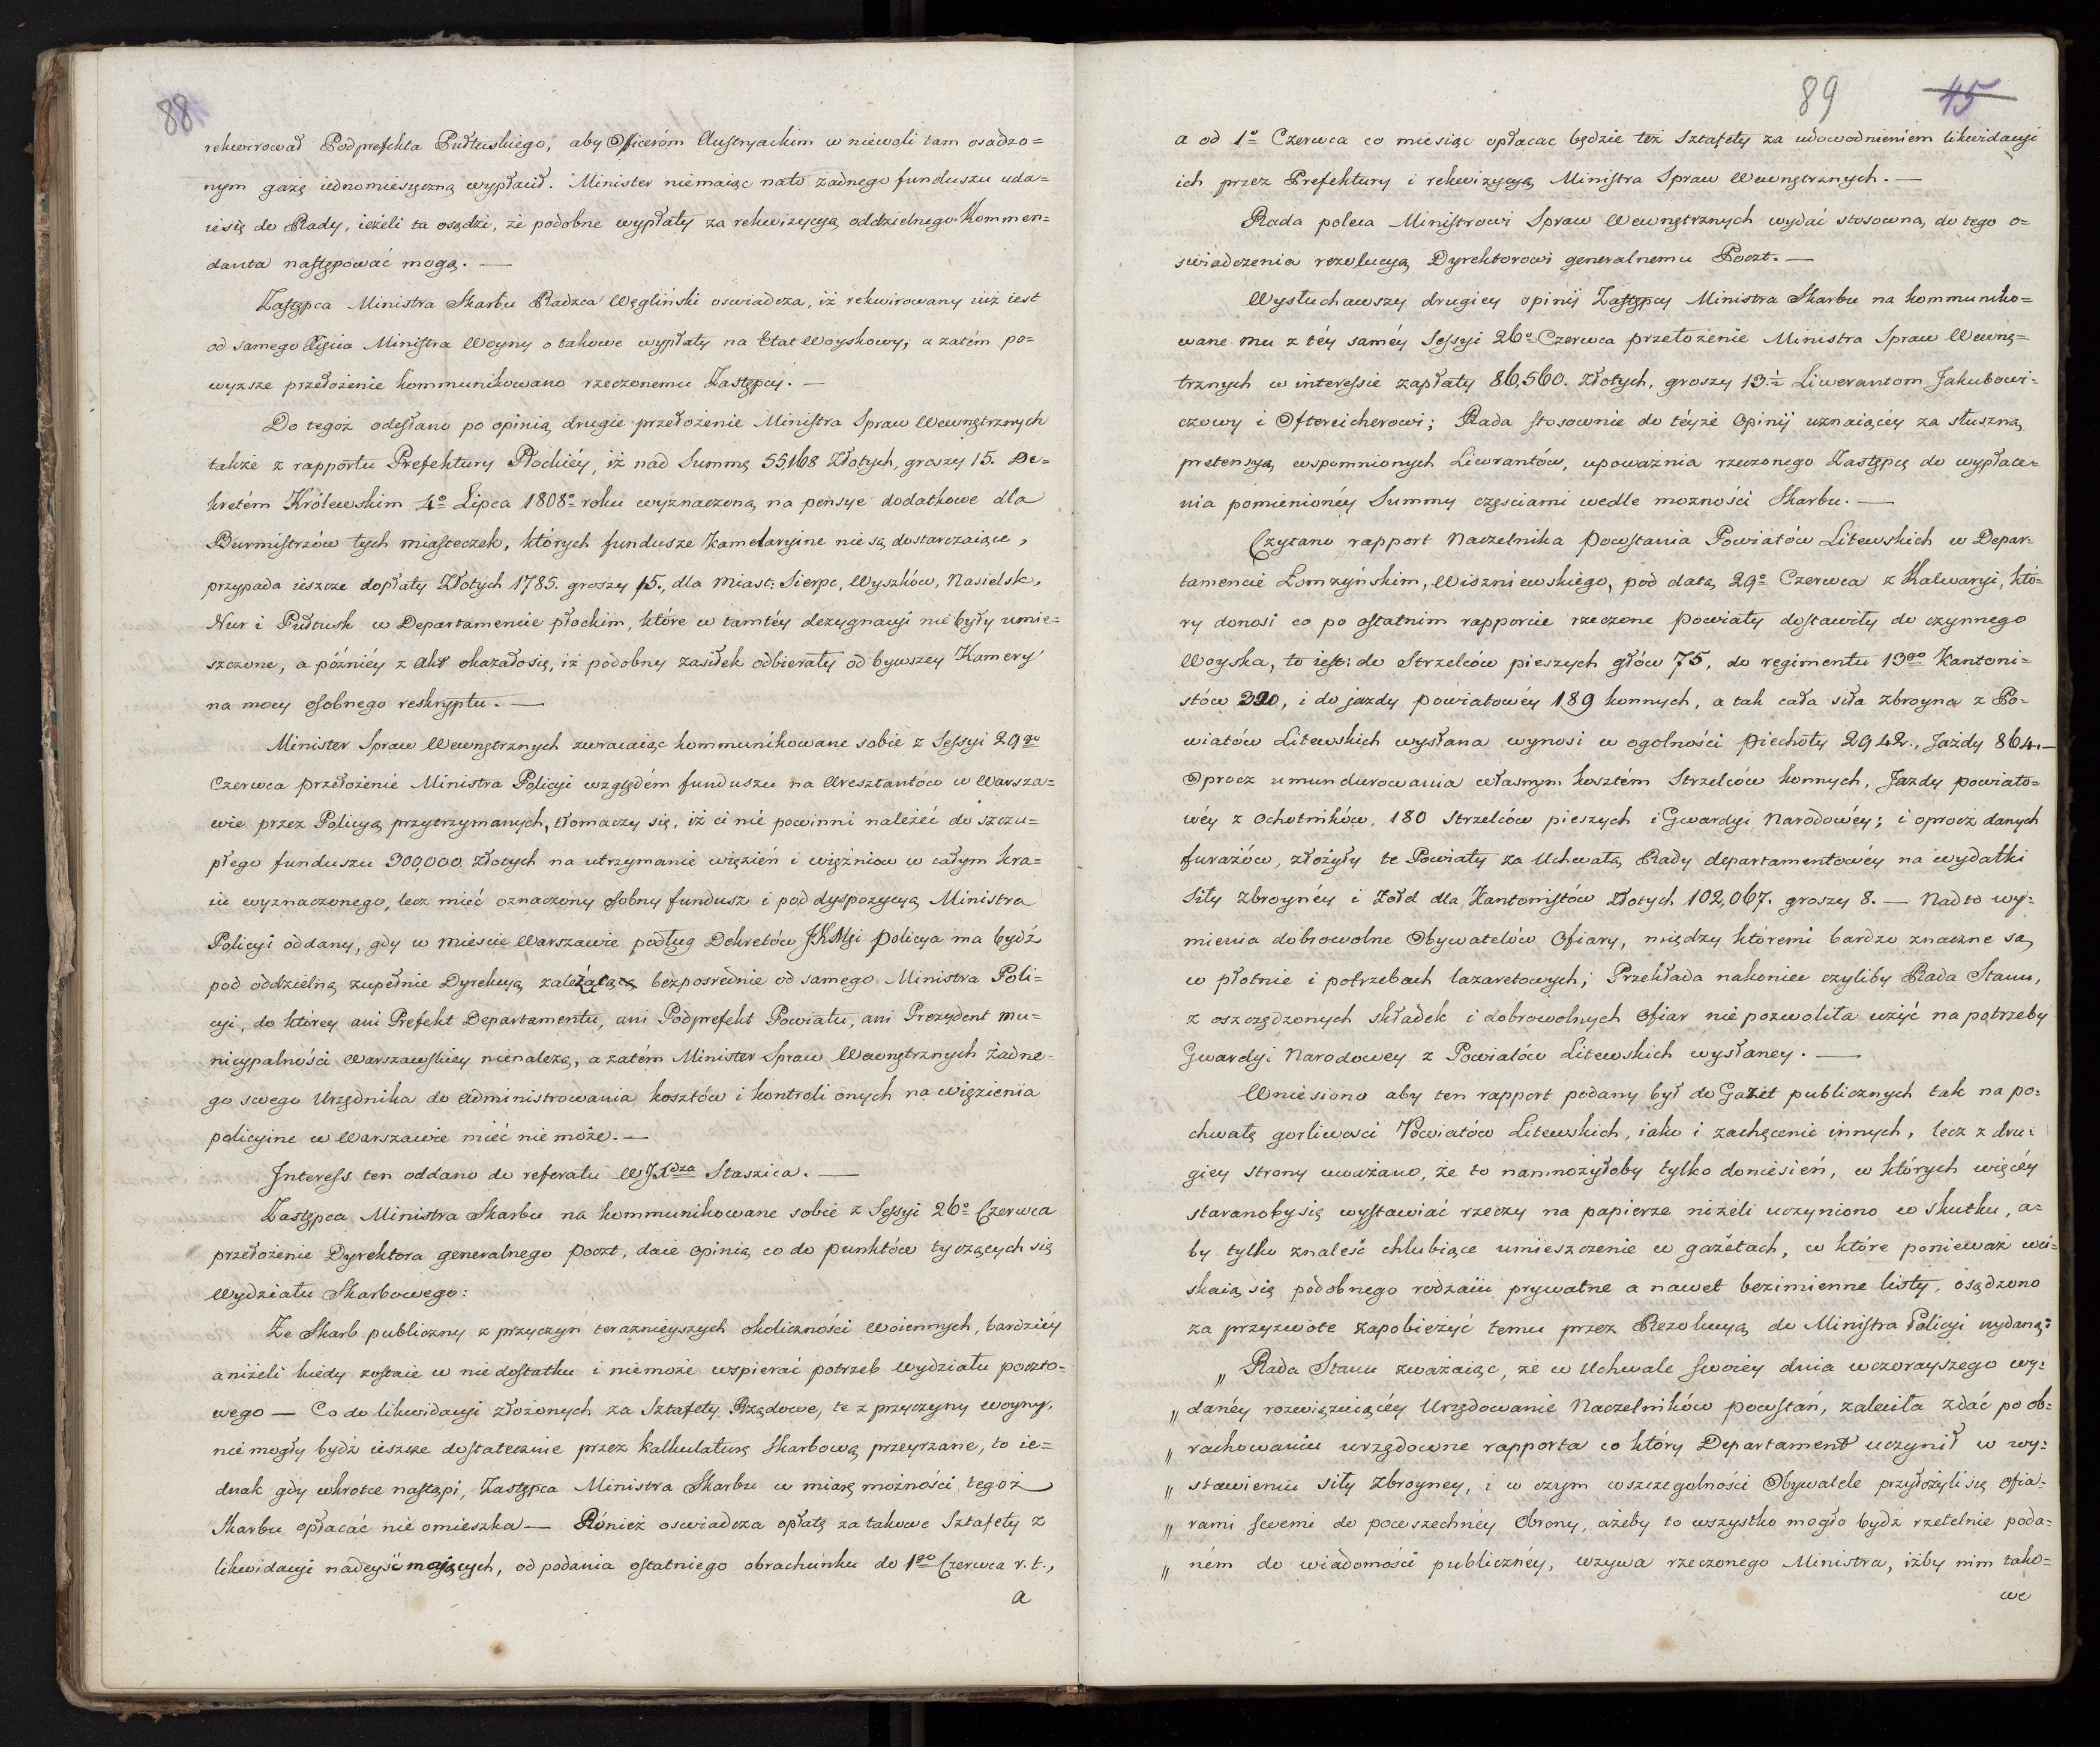 88
rekwirował Podprefekta Pułtuskiego, aby Officeróm Austryackim w niewoli tam osadzo=
nym gażę iednomiesięczną wypłacił. Minister niemaiąc nato żadnego funduszu uda=
ie się do Rady, ieżeli ta osądzi, że podobne wypłaty za rekwizycyą oddzielnego Kommen=
danta następować mogą. —
Zastępca Ministra Skarbu Radzca Węgliński oswiadcza, iż rekwirowany iuż iest
od samego Xięcia Ministra Woyny o takowe wypłaty na Etat Woyskowy; a zatém po=
wyższe przełożenie kommunikowano rzeczonemu Zastępcy. —
Do tegoż odesłano po opinią drugie przełożenie Ministra Spraw Wewnętrznych
także z rapportu Prefektury Płockiéy, iż nad Summę 55,168 Złotych, groszy 15. De=
kretém Królewskim 4º Lipca 1808º roku wyznaczoną na pensye dodatkowe dla
Burmistrzów tych miasteczek, których fundusze Kamelaryine nie są dostarczaiące,
przypada ieszcze dopłaty Złotych 1785. groszy 15., dla Miast: Sierpc, Wyszków, Nasielsk,
Nur i Pułtusk w Departamencie płockim, które w tamtéy dezygnacyi nie były umie=
szczone, a późniéy z akt okazałosię, iż podobny zasiłek odbierały od bywszey Kamery
na mocy osobnego reskryptu. —
Minister Spraw Wewnętrznych zwracaiąc kommunikowane sobie z Sessyi 29go
Czerwca przełożenie Ministra Policyi względém funduszu na Aresztantów w Warsza=
wie przez Policyą przytrzymanych, tłomaczy się, iż ci nie powinni należeć do szczu=
płego funduszu 300,000 złotych na utrzymanie więzień i więźniow w całym kra=
iu wyznaczonego, lecz mieć oznaczony osobny fundusz i pod dyspozycyą Ministra
Policyi oddany, gdy w mieście Warszawie podług Dekretów JKMci Policya ma bydź
pod oddzielną zupełnie Dyrekcyą zależącą bezposrednie od samego Ministra Poli=
cyi, do którey ani Prefekt Departamentu, ani Podprefekt Powiatu, ani Prezydent mu=
nicypalności Warszawskiey nienależą, a zatém Minister Spraw Wewnętrznych żadne=
go swego Urzędnika do administrowania kosztów i kontroli onych na więzienia
policyine w Warszawie mieć nie może. —
Interess ten oddano do referatu WJXdza Staszica. —
Zastępca Ministra Skarbu na kommunikowane sobie z Sessyi 26º Czerwca
przełożenie Dyrektora generalnego Poczt, daie opinią co do punktów tyczących się
Wydziału Skarbowego:
Że Skarb publiczny z przyczyn teraznieyszych okoliczności woiennych, bardziéy
aniżeli kiedy zostaie w niedostatku i niemoże wspierać potrzeb Wydziału poczto=
wego — Co do likwidacyi złożonych za Sztafety Rządowe, te z przyczyny woyny,
nie mogły bydź ieszcze dostatecznie przez kalkulaturę Skarbową przeyrzane, to ie=
dnak gdy wkrotce nastąpi, Zastępca Ministra Skarbu w miarę możności tegoż
Skarbu opłacać nie omieszka — Róniez oswiadcza opłatę za takowe Sztafety z
likwidacyi nadeyść maiących, od podania ostatniego obrachunku do 1go Czerwca r. t.,
a
89 45
a od 1º Czerwca co miesiąc opłacac będzie też Sztafety za udowodnieniem likwidacyi
ich przez Prefektury i rekwizycyą Ministra Spraw Wewnętrznych. —
Rada poleca Ministrowi Spraw Wewnętrznych wydać stosowną do tego o=
swiadczenia rezolucyą Dyrektorowi generalnemu Poczt. —
Wysłuchawszy drugiey opinij Zastępcy Ministra Skarbu na kommuniko=
wane mu z téy saméy Sessyi 26º Czerwca przełożenie Ministra Spraw Wewnę=
trznych w interessie zapłaty 86,560. Złotych, groszy 13½ Liwerantom Jakubowi=
czowy i Ostereicherowi; Rada stosownie do téyże Opinij uznaiącéy za słuszną
pretensyą wspomnionych Liwrantów, upoważnia rzeczonego Zastępcę do wypłace=
nia pomienionéy Summy częsciami wedle możności Skarbu. —
Czytano rapport Naczelnika Powstania Powiatów Litewskich w Depar=
tamencie Łomzyńskim, Wiszniewskiego, pod datą 29º Czerwca z Kalwaryi, któ=
ry donosi co po ostatnim rapporcie rzeczone Powiaty dostawiły do czynnego
Woyska, to iest: do Strzelców pieszych głów 75, do regimentu 13go Kantoni=
stów 220, i do jazdy powiatowéy 189 konnych, a tak cała siła zbroyna z Po=
wiatów Litewskich wysłana wynosi w ogolności Piechoty 2942., Jazdy 864. —
Oprocz umundurowania własnym kosztém Strzelców konnych, Jazdy powiato=
wéy z Ochotników, 180 Strzelców pieszych i Gwardyi Narodowéy; i oprocz danych
furażów, złożyły te Powiaty za Uchwałą Rady departamentowéy na wydatki
Siły zbroynéy i Żołd dla Kantonistów Złotych 102,067. groszy 8. — Nadto wy=
mienia dobrowolne Obywatelów Ofiary, między któremi bardzo znaczne są
w płotnie i potrzebach lazaretowych; Przekłada nakoniec czyliby Rada Stanu,
z oszczędzonych składek i dobrowolnych Ofiar nie pozwoliła użyć na potrzeby
Gwardyi Narodowey z Powiatów Litewskich wysłaney. —
Wniesiono aby ten rapport podany był do Gazet publicznych tak na po=
chwałę gorliwosci Powiatów Litewskich, iako i zachęcenie innych, lecz z dru=
giey strony uważano, że to namnożyłoby tylko doniesień, w których więcéy
staranoby się wystawiać rzeczy na papierze niżeli uczyniono w skutku, a=
by tylko znaleść chlubiące umieszczenie w gazétach, w które ponieważ wci=
skaią się podobnego rodzaiu prywatne a nawet bezimienne listy, osądzono
za przyzwote zapobieżyć temu przez Rezolucyą do Ministra Policyi wydaną:
„ Rada Stanu zważaiąc, że w Uchwale swoiey dnia wczorayszego wy=
„ danéy rozwięzuiącéy Urzędowanie Naczelników powstań, zaleciła zdać po ob=
„ rachowaniu urzędowne rapporta co który Departament uczynił w wy=
„ stawieniu siły zbroyney, i w czym wszczegolności Obywatele przyłożyli się Ofia=
„ rami swemi do powszechnéy Obrony, ażeby to wszystko mogło bydź rzetelnie poda=
„ ném do wiadomości publicznéy, wzywa rzeczonego Ministra, iżby nim tako=
we